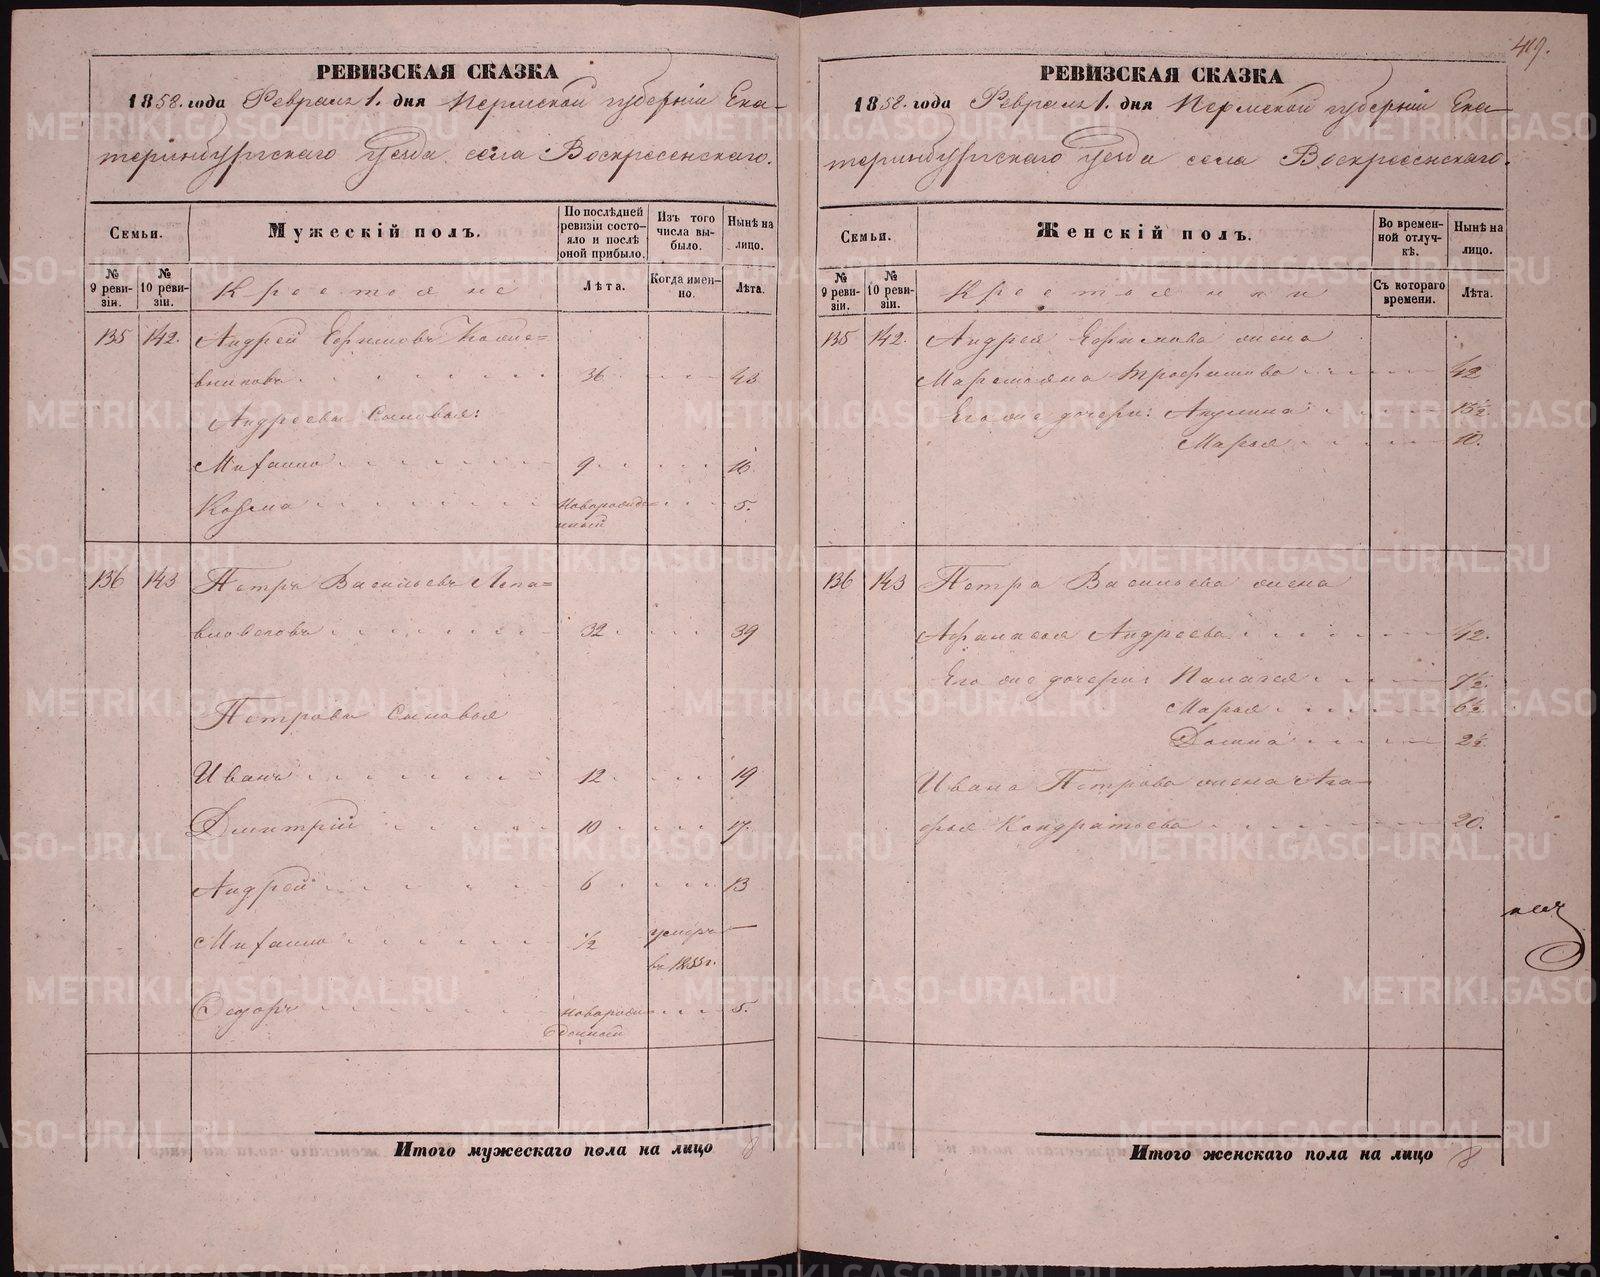 419.
РЕВИЗСКАЯ СКАЗКА
1858. года Февраля 1. дня Пермской губерніи Ека-
теринбургскаго уезда села Воскресенскаго.
Семьи.
Мужескій полъ.
По послѣдней ревизіи состо-яло и послѣ оной прибыло.
Изъ того числа вы-было.
Нынѣ на лицо.
№ 9 реви-зіи.
№ 10 реви-зіи.
Крестьяне
Лѣта.
Когда имен-но.
Лѣта.
135 142. Андрей Ефимовъ
вниковъ 36 43
Андреевы Сыновья:
Михаило 9 16
Козма Новорожде= 5.
нный
136 143 Петръ Васильевъ
вловсковъ 32 39
Петровы Сыновья
Иванъ 12 19
Дмитрій 10 17.
Андрей 6 13
Михаило 1/2 умеръ —
въ 1855 г.
Федоръ новорож= 5.
денный
Итого мужескаго пола на лицо 8
РЕВИЗСКАЯ СКАЗКА
1858. года Февраля 1. дня Пермской губерніи Ека-
теринбургскаго уезда села Воскресенскаго.
Семьи.
Женскій полъ.
Во времен-ной отлуч-кѣ.
Нынѣ на лицо.
№ 9 реви-зіи.
№ 10 реви-зіи.
Крестьянки
Съ котораго времени.
Лѣта.
135 142. Андрея Ефимова жена
Маремьяна Трофимова 42
Его же дочери: Акулина 13 1/2.
Марья 10.
136 143 Петра Васильева жена
Афанасья Андреева 42.
Его же дочери: Палагея 7 1/2.
Марья 6 1/2
Домна 2 1/2.
Ивана Петрова жена Ага-
фья Кондратьева 20.
Итого женскаго пола на лицо 8
METRIKI.GASO-URAL.RU